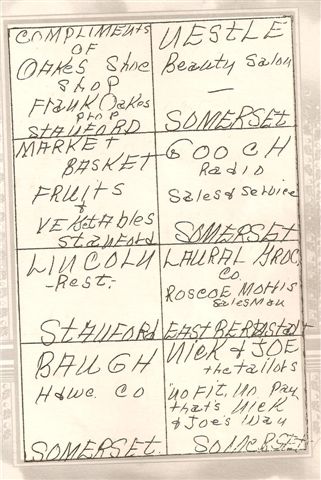 COMPLIMENTS
OF
OAKES Shoe
Shop
FRANK OAKES
PROP
STANFORD
VESTLE
Beauty Salon
—
SOMERSET
MARKET
BASKET
FRUITS
&
VEGETABLES
STANFORD
GOOCH
Radio
Sales & Service
SOMERSET
LINCOLN
-Rest.-
STANFORD
LAURAL GROC.
CO.
ROSCOE MORRIS
Salesman
EAST BERNSTADT
BAUGH
HDWE. CO
SOMERSET.
NICK & JOE
the tailors
"NO FIT, NO Pay
that's NICK
& JOE'S WAY
SOMERSET.